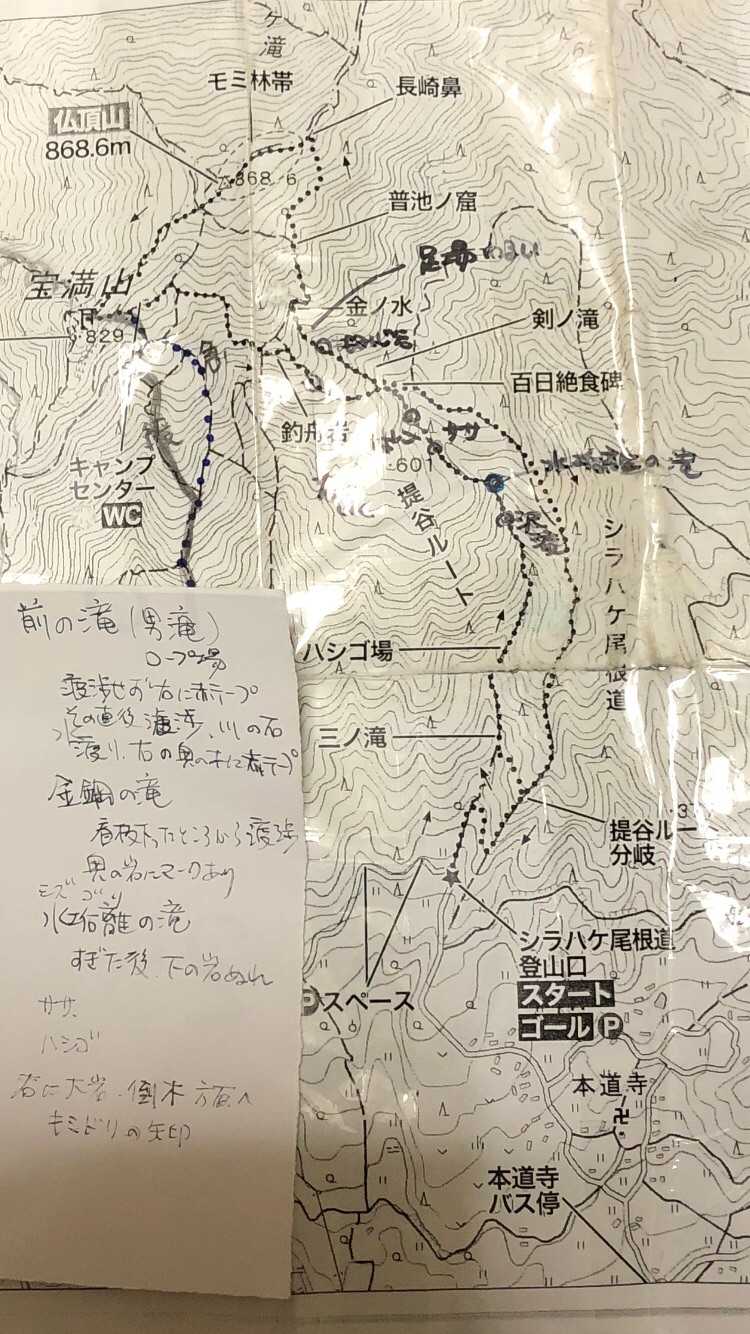 ケ滝
モミ林帯
長崎鼻
仏頂山
868.6m
868.6
普池ノ窟
足場わるい
宝満山
829
金ノ水
剣ノ滝
百日絶食碑
釣舟岩
ササ
601
キャンプ
センター
WC
提谷ルート
シラハケ尾根道
ハシゴ場
三ノ滝
提谷ルー
分岐
シラハケ尾根道
登山口
スタート
ゴール P
P スペース
本道寺
本道寺
バス停
前の滝(男滝)
ロープ場
渡渉せず右に赤テープ
その直後渡渉、川の石
渡り、右の奥の木に赤テープ
金剛の滝
看板下ったところから渡渉
奥の岩にマークあり
ミズゴリ
水垢離の滝
すぎた後、下の岩ぬれ
ササ
ハシゴ
右に大岩、倒木方面へ
キミドリの矢印